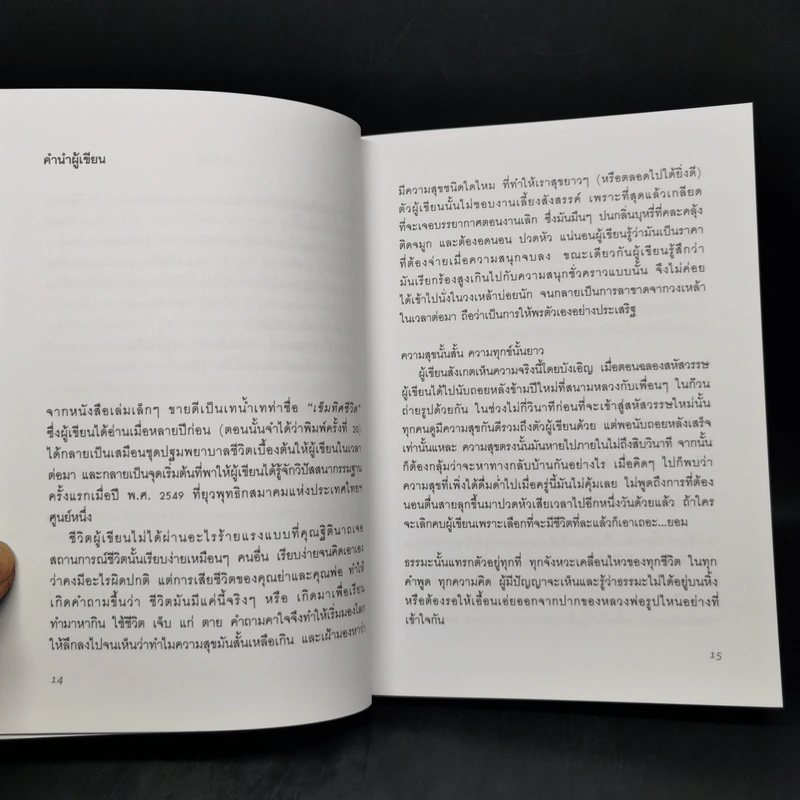 คำนำผู้เขียน
จากหนังสือเล่มเล็กๆ ขายดีเป็นเทน้ำเทท่าชื่อ "เข็มทิศชีวิต"
ซึ่งผู้เขียนได้อ่านเมื่อหลายปีก่อน (ตอนนั้นจำได้ว่าพิมพ์ครั้งที่ 20)
ได้กลายเป็นเสมือนชุดปฐมพยาบาลชีวิตเบื้องต้นให้ผู้เขียนในเวลา
ต่อมา และกลายเป็นจุดเริ่มต้นที่พาให้ผู้เขียนได้รู้จักวิปัสสนากรรมฐาน
ครั้งแรกเมื่อปี พ.ศ. 2549 ที่ยุวพุทธิกสมาคมแห่งประเทศไทยฯ
ศูนย์หนึ่ง
ชีวิตผู้เขียนไม่ได้ผ่านอะไรร้ายแรงแบบที่คุณฐิตินาถเจอ
สถานการณ์ชีวิตนั้นเรียบง่ายเหมือนๆ คนอื่น เรียบง่ายจนคิดเอาเอง
ว่าคงมีอะไรผิดปกติ แต่การเสียชีวิตของคุณย่าและคุณพ่อ ทำให้
เกิดคำถามขึ้นว่า ชีวิตมันมีแค่นี้จริงๆ หรือ เกิดมาเพื่อเรียน
ทำมาหากิน ใช้ชีวิต เจ็บ แก่ ตาย คำถามคาใจจึงทำให้เริ่มมองโลก
ให้ลึกลงไปจนเห็นว่าทำไมความสุขมันสั้นเหลือเกิน และเฝ้ามองหาว่า
14
มีความสุขชนิดใดไหม ที่ทำให้เราสุขยาวๆ (หรือตลอดไปได้ยิ่งดี)
ตัวผู้เขียนนั้นไม่ชอบงานเลี้ยงสังสรรค์ เพราะที่สุดแล้วเกลียด
ที่จะเจอบรรยากาศตอนงานเลิก ซึ่งมันมึนๆ ปนกลิ่นบุหรี่ที่คละคลุ้ง
ติดจมูก และต้องอดนอน ปวดหัว แน่นอนผู้เขียนรู้ว่ามันเป็นราคา
ที่ต้องจ่ายเมื่อความสนุกจบลง ขณะเดียวกันผู้เขียนรู้สึกว่า
มันเรียกร้องสูงเกินไปกับความสนุกชั่วคราวแบบนั้น จึงไม่ค่อย
ได้เข้าไปนั่งในวงเหล้าบ่อยนัก จนกลายเป็นการลาขาดจากวงเหล้า
ในเวลาต่อมา ถือว่าเป็นการให้พรตัวเองอย่างประเสริฐ
ความสุขนั้นสั้น ความทุกข์นั้นยาว
ผู้เขียนสังเกตเห็นความจริงนี้โดยบังเอิญ เมื่อตอนฉลองสหัสวรรษ
ผู้เขียนได้ไปนับถอยหลังข้ามปีใหม่ที่สนามหลวงกับเพื่อนๆ ในก๊วน
ถ่ายรูปด้วยกัน ในช่วงไม่กี่วินาทีก่อนที่จะเข้าสู่สหัสวรรษใหม่นั้น
ทุกคนดูมีความสุขกันดีรวมถึงตัวผู้เขียนด้วย แต่พอนับถอยหลังเสร็จ
เท่านั้นแหละ ความสุขตรงนั้นมันหายไปภายในไม่ถึงสิบวินาที จากนั้น
ก็ต้องกลุ้มว่าจะหาทางกลับบ้านกันอย่างไร เมื่อคิดๆ ไปก็พบว่า
ความสุขที่เพิ่งได้ดื่มด่ำไปเมื่อครู่นี้มันไม่คุ้มเลย ไม่พูดถึงการที่ต้อง
นอนตื่นสายลุกขึ้นมาปวดหัวเสียเวลาไปอีกหนึ่งวันด้วยแล้ว ถ้าใคร
จะเลิกคบผู้เขียนเพราะเลือกที่จะมีชีวิตที่ละแล้วก็เอาเถอะ...ยอม
ธรรมะนั้นแทรกตัวอยู่ทุกที่ ทุกจังหวะเคลื่อนไหวของทุกชีวิต ในทุก
คำพูด ทุกความคิด ผู้มีปัญญาจะเห็นและรู้ว่าธรรมะไม่ได้อยู่บนหิ้ง
หรือต้องรอให้เอื้อนเอ่ยออกจากปากของหลวงพ่อรูปไหนอย่างที่
เข้าใจกัน
15